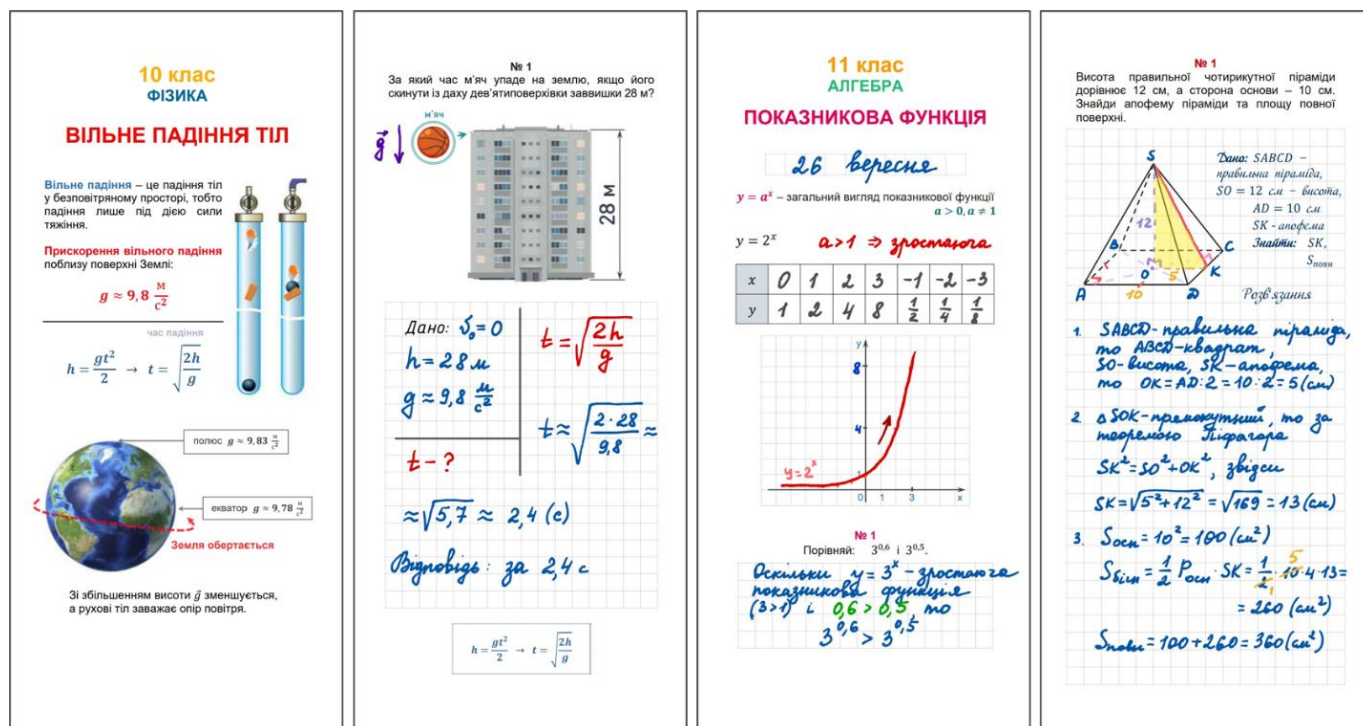 10 клас
ФІЗИКА
ВІЛЬНЕ ПАДІННЯ ТІЛ
Вільне падіння – це падіння тіл
у безповітряному просторі, тобто
падіння лише під дією сили
тяжіння.
Прискорення вільного падіння
поблизу поверхні Землі:
g ≈ 9,8 м/с²
час падіння
h = gt²/2 → t = √(2h/g)
полюс g ≈ 9,83 м/с²
екватор g ≈ 9,78 м/с²
Земля обертається
Зі збільшенням висоти g⃗ зменшується,
а рухові тіл заважає опір повітря.
№ 1
За який час м'яч упаде на землю, якщо його
скинути із даху дев'ятиповерхівки заввишки 28 м?
м'яч
g⃗
28 м
Дано: υ₀ = 0
h = 28 м
g ≈ 9,8 м/с²
t – ?
t = √(2h/g)
t ≈ √(2 · 28/9,8) ≈
≈ √5,7 ≈ 2,4 (с)
Відповідь: за 2,4 с
h = gt²/2 → t = √(2h/g)
11 клас
АЛГЕБРА
ПОКАЗНИКОВА ФУНКЦІЯ
26 вересня
y = aˣ – загальний вигляд показникової функції
a > 0, a ≠ 1
y = 2ˣ a > 1 ⇒ зростаюча
x 0 1 2 3 -1 -2 -3
y 1 2 4 8 1/2 1/4 1/8
y
8
4
y = 2ˣ
0 1 3 x
№ 1
Порівняй: 3^0,6 і 3^0,5.
Оскільки y = 3ˣ – зростаюча
показникова функція
(3 > 1) і 0,6 > 0,5, то
3^0,6 > 3^0,5
№ 1
Висота правильної чотирикутної піраміди
дорівнює 12 см, а сторона основи – 10 см.
Знайди апофему піраміди та площу повної
поверхні.
S
12
B
C
O
5
K
A
10
D
Дано: SABCD –
правильна піраміда,
SO = 12 см – висота,
AD = 10 см
SK - апофема
Знайти: SK,
Sповн
Розв'язання
1. SABCD - правильна піраміда,
то ABCD - квадрат,
SO - висота, SK - апофема,
то OK = AD : 2 = 10 : 2 = 5 (см)
2. △SOK - прямокутний, то за
теоремою Піфагора
SK² = SO² + OK², звідси
SK = √(5² + 12²) = √169 = 13 (см)
3. Sосн = 10² = 100 (см²)
5
Sбічн = 1/2 Pосн · SK = 1/2 · 10 · 4 · 13 =
1
= 260 (см²)
Sповн = 100 + 260 = 360 (см²)